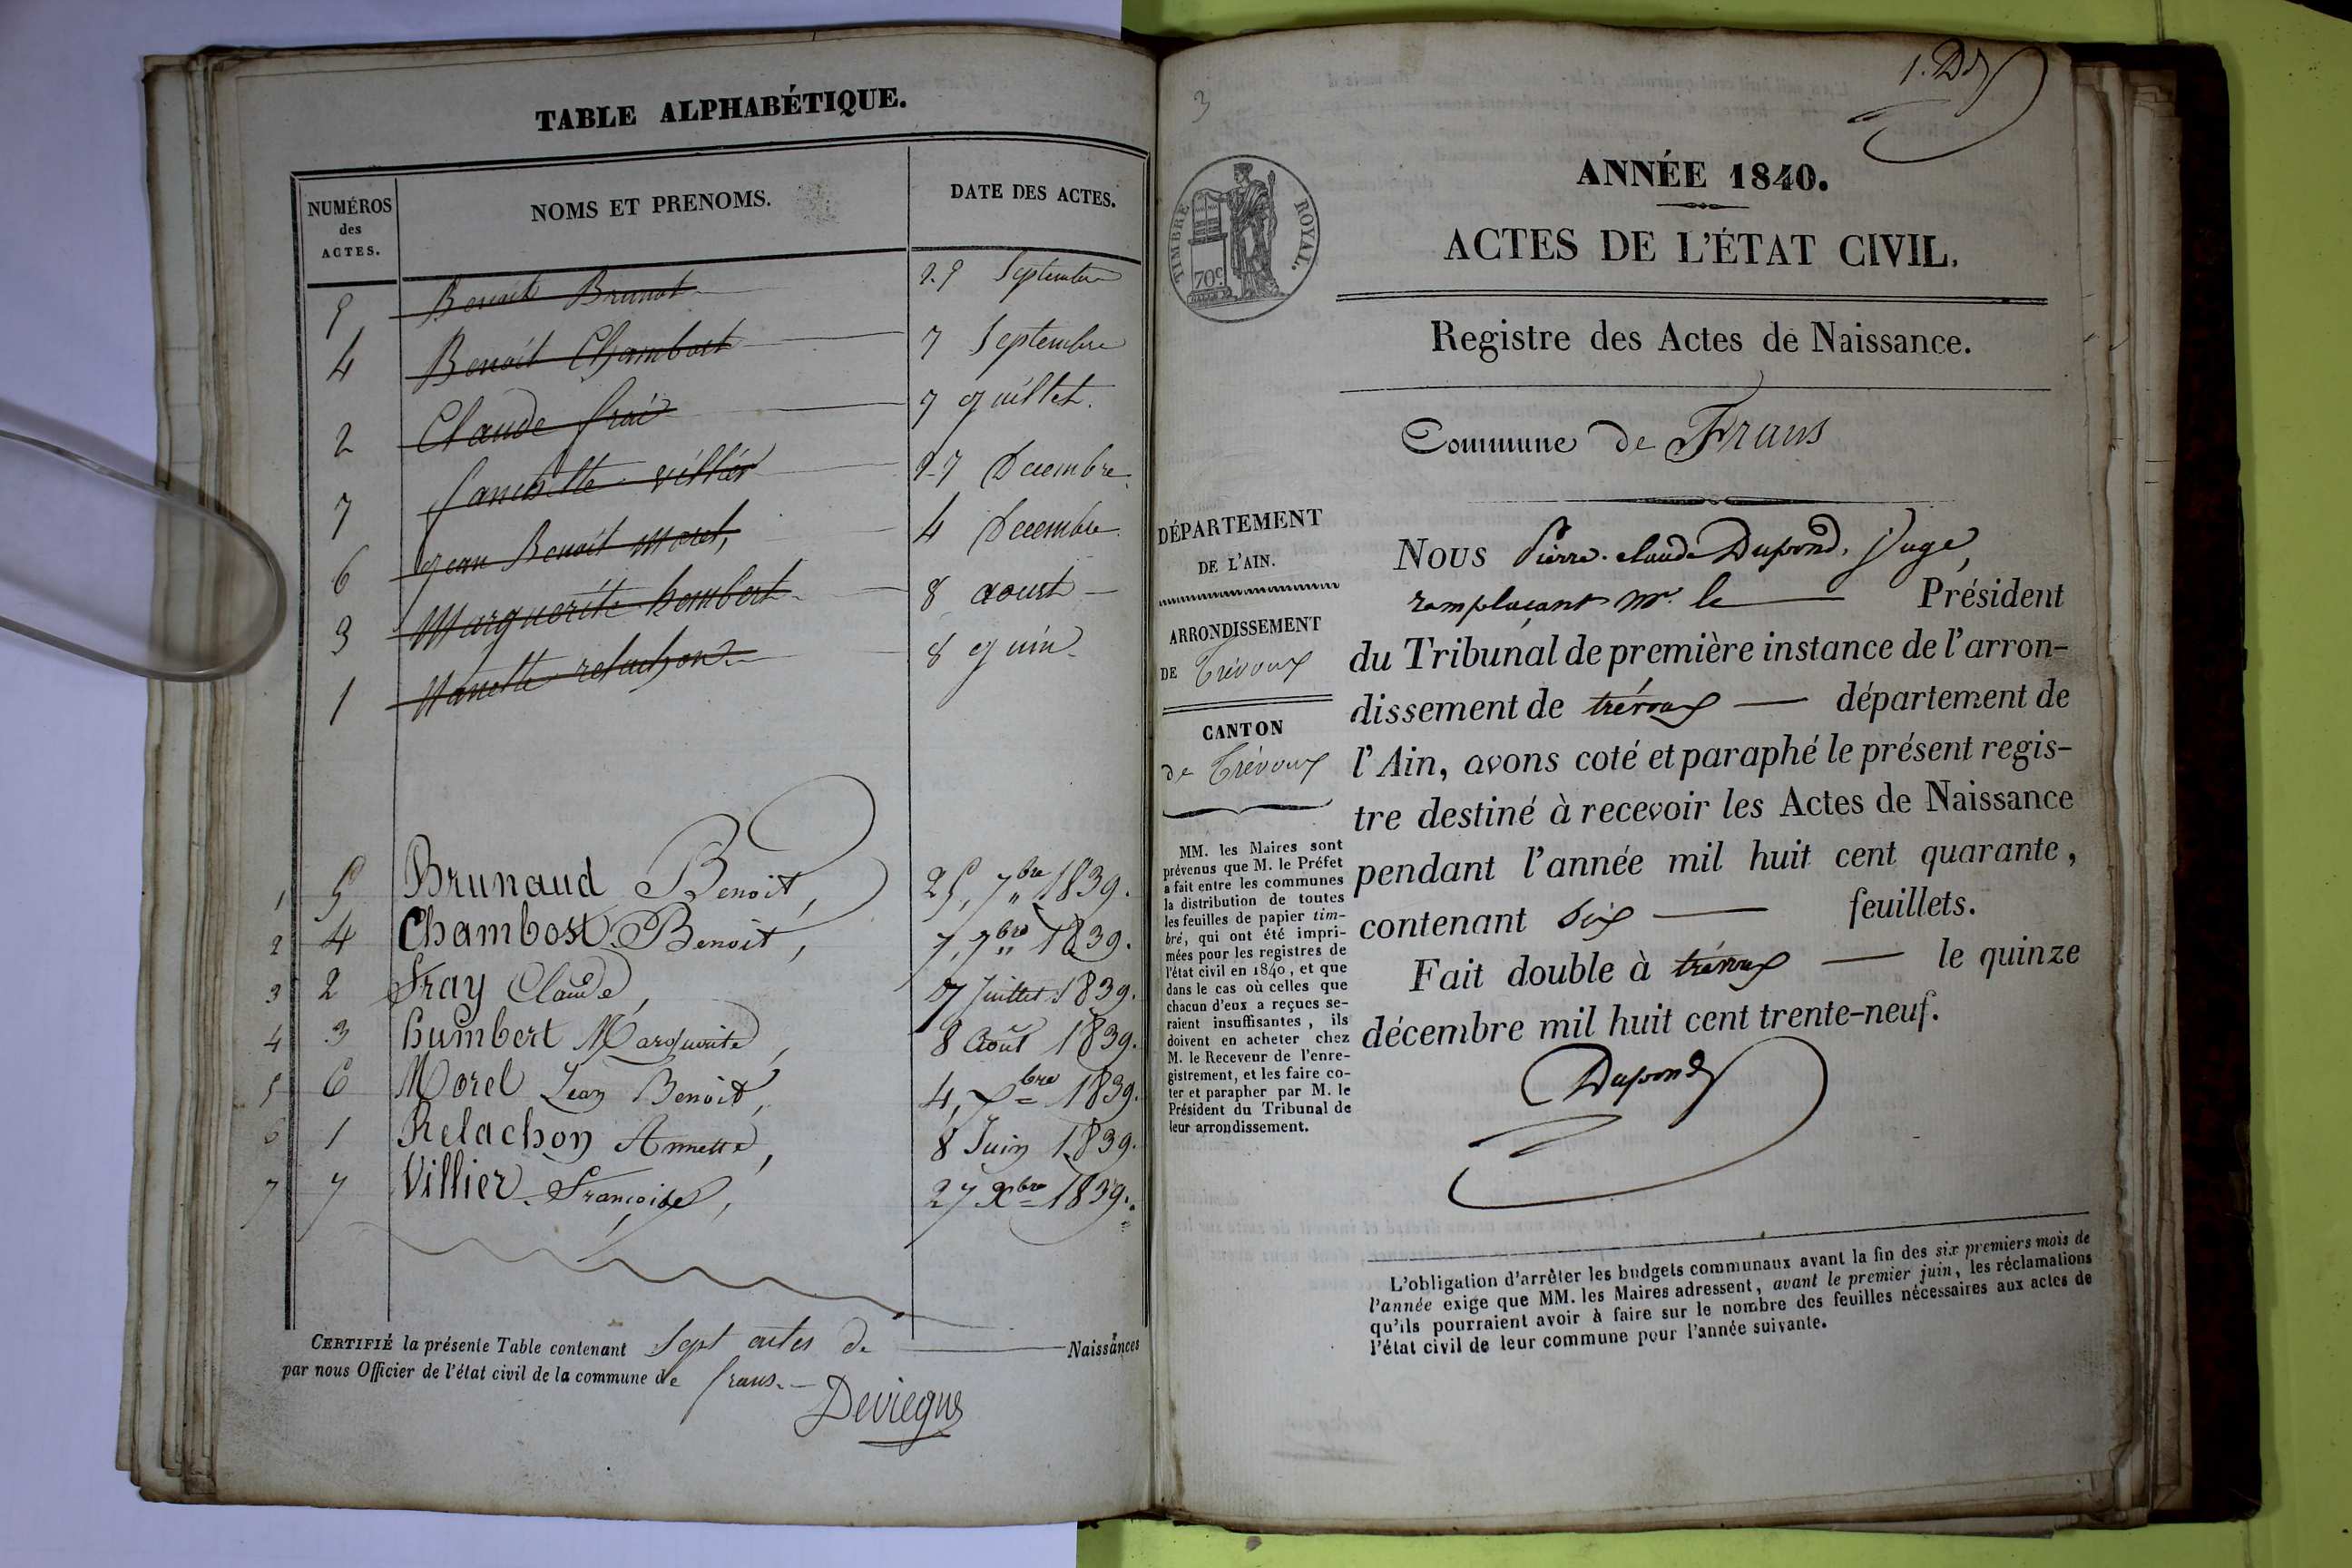 TABLE ALPHABÉTIQUE.
NUMÉROS des ACTES.
NOMS ET PRENOMS.
DATE DES ACTES.
5 Benoit Brunot 25 Septembre
4 Benoit Chambost 7 Septembre
2 Claude frai 7 juillet.
7 villier 27 Decembre.
6 jean Benoit morel, 4 Decembre
3 Marguerite hombert 8 aoust
1 Nanette relachon 8 juin
1 5 Brunaud Benoit, 25, 7bre 1839.
2 4 Chambost Benoit, 7, 7bre 1839.
3 2 Fray Claude, 7 Juillet 1839.
4 3 humbert Marguerite, 8 Août 1839.
5 6 Morel Jean Benoit, 4, Xbre 1839.
6 1 Relachon Annette, 8 Juin 1839.
7 7 Villier Françoise, 27 Xbre 1839.
CERTIFIÉ la présente Table contenant Sept actes de Naissances
par nous Officier de l'état civil de la commune de frans.
3
TIMBRE ROYAL.
70c
ANNÉE 1840.
ACTES DE L'ÉTAT CIVIL.
Registre des Actes de Naissance.
Commune de Frans
DÉPARTEMENT
DE L'AIN.
ARRONDISSEMENT
DE Trévoux
CANTON
de Trévoux
MM. les Maires sont
prévenus que M. le Préfet
a fait entre les communes
la distribution de toutes
les feuilles de papier tim-
bré, qui ont été impri-
mées pour les registres de
l'état civil en 1840, et que
dans le cas où celles que
chacun d'eux a reçues se-
raient insuffisantes, ils
doivent en acheter chez
M. le Receveur de l'enre-
gistrement, et les faire co-
ter et parapher par M. le
Président du Tribunal de
leur arrondissement.
Nous Pierre-claude Dupond, Juge,
remplaçant Mr. le Président
du Tribunal de première instance de l'arron-
dissement de trévoux département de
l'Ain, avons coté et paraphé le présent regis-
tre destiné à recevoir les Actes de Naissance
pendant l'année mil huit cent quarante,
contenant Six feuillets.
Fait double à trévoux le quinze
décembre mil huit cent trente-neuf.
Dupond
L'obligation d'arrêter les budgets communaux avant la fin des six premiers mois de
l'année exige que MM. les Maires adressent, avant le premier juin, les réclamations
qu'ils pourraient avoir à faire sur le nombre des feuilles nécessaires aux actes de
l'état civil de leur commune pour l'année suivante.